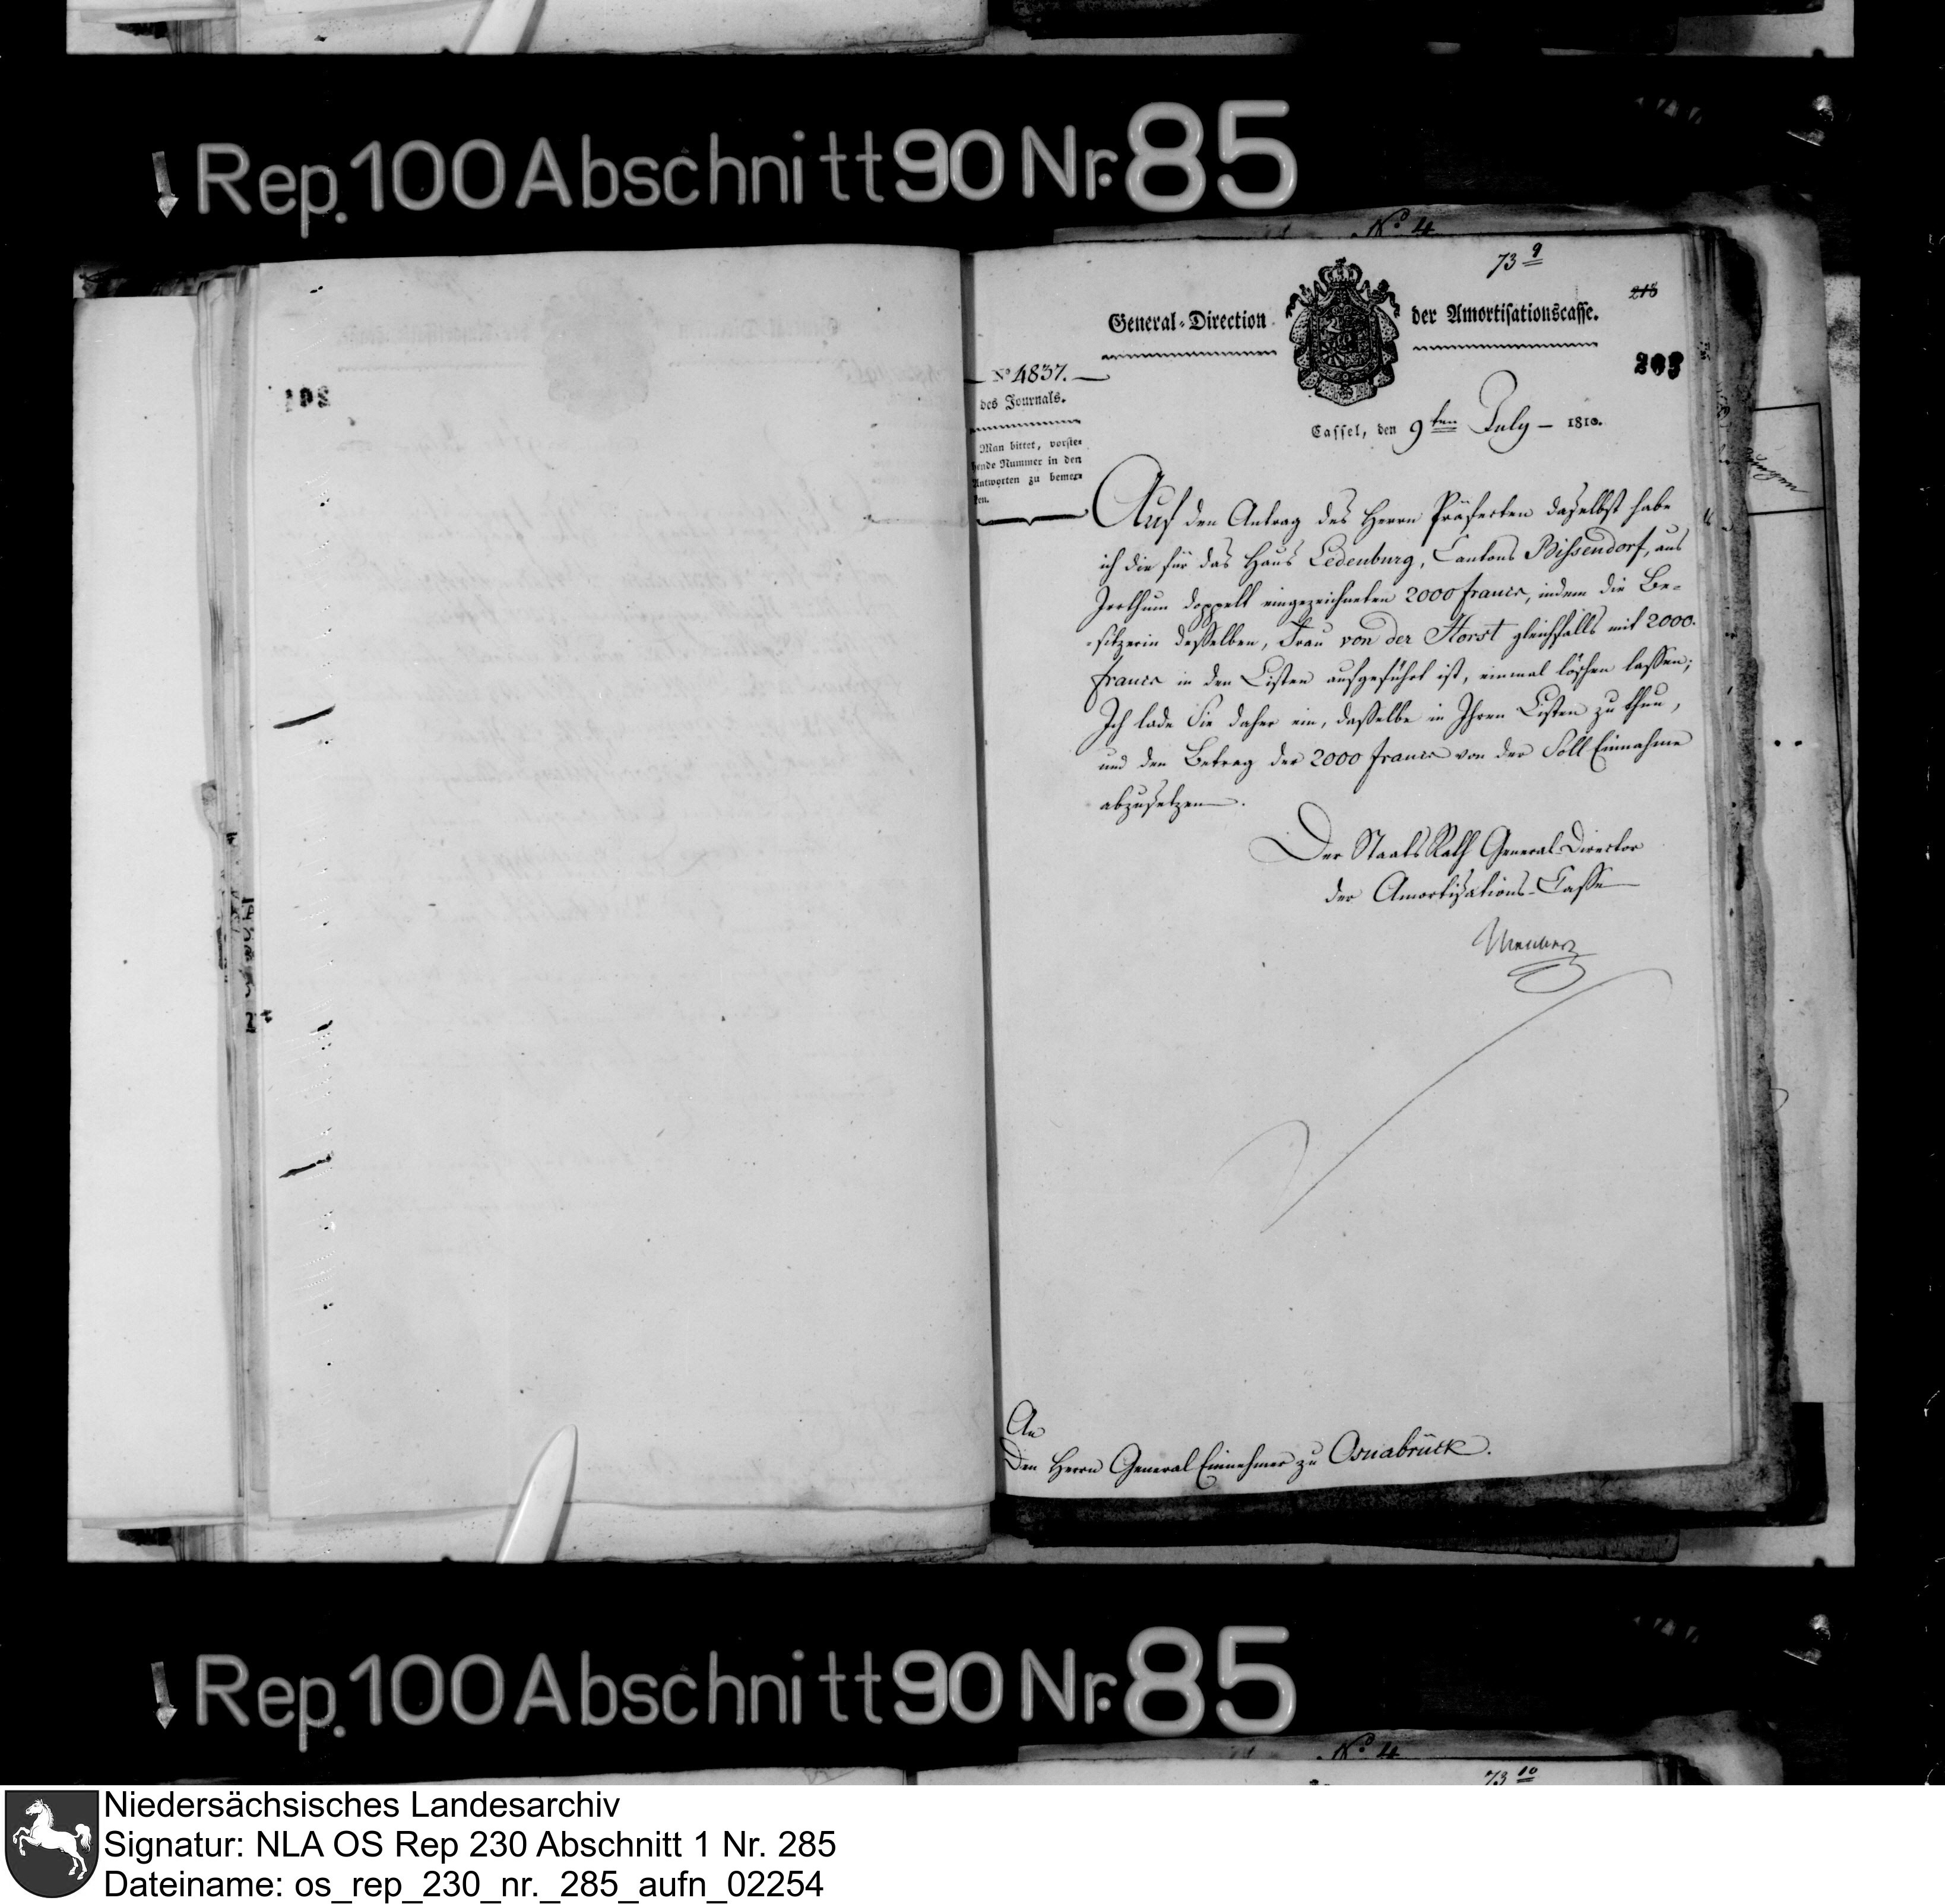 Rep. 100 Abschnitt 90 Nr. 85
No. 4
73 9
General-Direction der Amortisationscasse.
218
203
No 4837.
des Journals.
Man bittet, vorste-
hende Nummer in den
Antworten zu bemer-
ken.
Cassel, den 9ten July – 1810.
Auf den Antrag des Herrn Präfecten daselbst habe
ich die für das Haus Ledenburg, Cantons Bissendorf, aus
Irrthum doppelt eingezeichneten 2000 francs, indem die Be-
sitzerin desselben, Frau von der Horst gleichfalls mit 2000.
francs in den Listen aufgeführt ist, einmal löschen lassen;
Ich lade Sie daher ein, dasselbe in Ihren Listen zu thun,
und den Betrag der 2000 francs von der Soll Einnahme
abzusetzen.
Der StaatsRath General-Director
der Amortisations-Casse
An
Den Herrn General Einnehmer zu Osnabrück.
Rep. 100 Abschnitt 90 Nr. 85
No. 4
73 10
Niedersächsisches Landesarchiv
Signatur: NLA OS Rep 230 Abschnitt 1 Nr. 285
Dateiname: os_rep_230_nr._285_aufn_02254